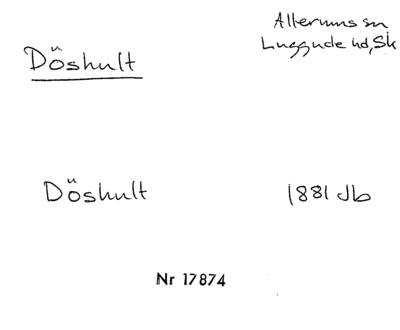 Döshult
Allerums sn
Luggude hd, Sk
Döshult
1881 Jb
Nr 17874